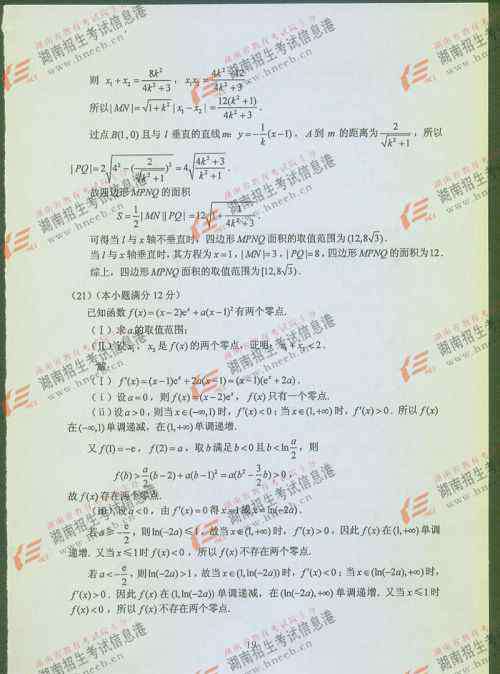 则 x₁+x₂=8k²/(4k²+3), x₁x₂=(4k²-12)/(4k²+3).
所以|MN|=√(1+k²)|x₁-x₂|=12(k²+1)/(4k²+3).
过点B(1,0)且与l垂直的直线m: y=-1/k(x-1), A到m的距离为2/√(k²+1), 所以
|PQ|=2√(4²-(2/√(k²+1))²)=4√((4k²+3)/(k²+1)).
故四边形MPNQ的面积
S=1/2|MN||PQ|=12√(1+1/(4k²+3)).
可得当l与x轴不垂直时, 四边形MPNQ面积的取值范围为(12,8√3).
当l与x轴垂直时, 其方程为x=1, |MN|=3, |PQ|=8, 四边形MPNQ的面积为12.
综上, 四边形MPNQ面积的取值范围为[12,8√3).
(21) (本小题满分12分)
已知函数f(x)=(x-2)eˣ+a(x-1)²有两个零点.
(Ⅰ)求a的取值范围;
(Ⅱ)设x₁, x₂是f(x)的两个零点, 证明: x₁+x₂<2.
解:
(Ⅰ) f′(x)=(x-1)eˣ+2a(x-1)=(x-1)(eˣ+2a).
(ⅰ)设a=0, 则f(x)=(x-2)eˣ, f(x)只有一个零点.
(ⅱ)设a>0, 则当x∈(-∞,1)时, f′(x)<0; 当x∈(1,+∞)时, f′(x)>0. 所以f(x)
在(-∞,1)单调递减, 在(1,+∞)单调递增.
又f(1)=-e, f(2)=a, 取b满足b<0且b<ln a/2, 则
f(b)>a/2(b-2)+a(b-1)²=a(b²-3/2b)>0,
故f(x)存在两个零点.
(ⅲ)设a<0, 由f′(x)=0得x=1或x=ln(-2a).
若a≥-e/2, 则ln(-2a)≤1, 故当x∈(1,+∞)时, f′(x)>0, 因此f(x)在(1,+∞)单调
递增. 又当x≤1时f(x)<0, 所以f(x)不存在两个零点.
若a<-e/2, 则ln(-2a)>1, 故当x∈(1,ln(-2a))时, f′(x)<0; 当x∈(ln(-2a),+∞)时,
f′(x)>0. 因此f(x)在(1,ln(-2a))单调递减, 在(ln(-2a),+∞)单调递增. 又当x≤1时
f(x)<0, 所以f(x)不存在两个零点.
19
湖南省教育考试院主办
湖南招生考试信息港
www.hneeb.cn